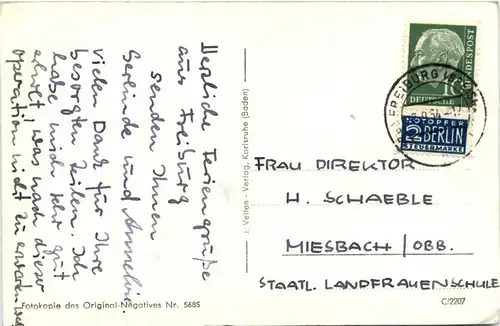 Herzliche Feriengrüße
aus Freiburg
senden Ihnen
Gerlinde und Annelene.
Vielen Dank für Ihre
besorgten Zeilen. Ich
habe mich sehr gut
erholt, was nach dieser
Operation nicht zu erwarten war
J. Vetten - Verlag, Karlsruhe (Baden)
DEUTSCHE BUNDESPOST
10
FREIBURG
NOTOPFER
2 BERLIN
STEUERMARKE
FRAU DIREKTOR
H. SCHAEBLE
MIESBACH/OBB.
STAATL. LANDFRAUENSCHULE
Fotokopie des Original-Negatives Nr. 5685
C/2207